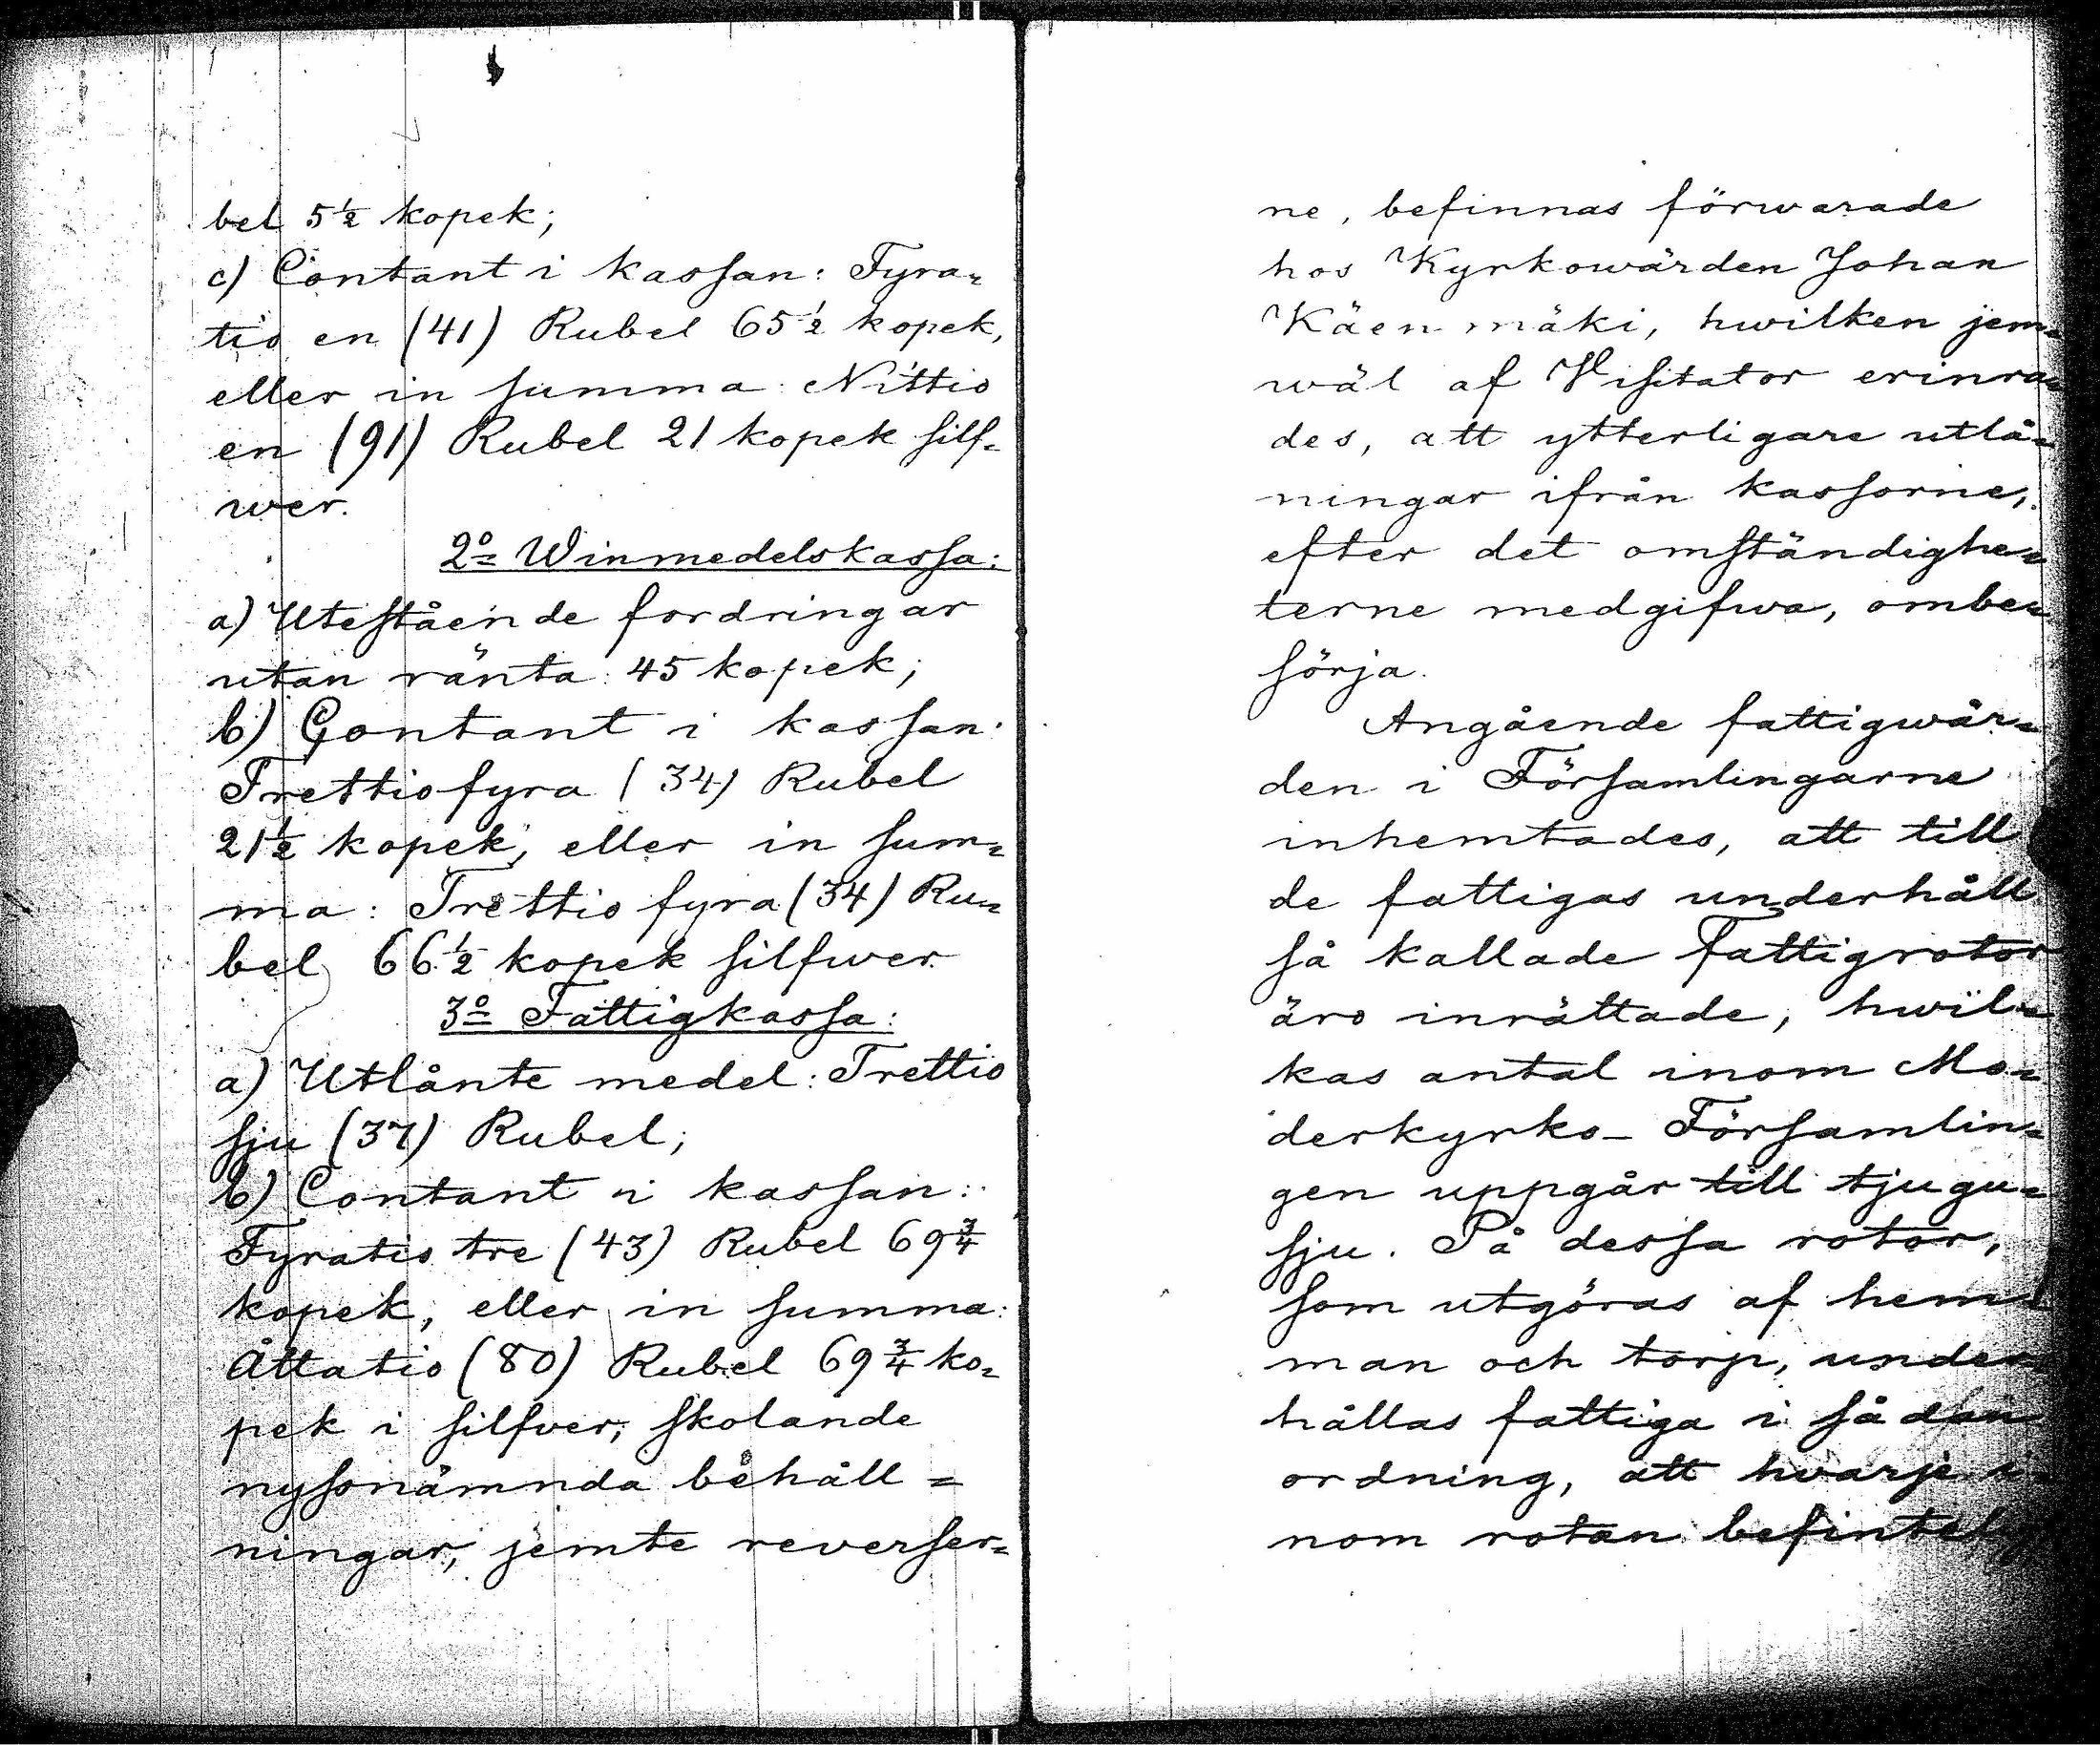 bel 5½ kopek;
c) Contant i kassan: Fyra=
tio en (41) Rubel 65½ kopek,
eller in summa: Nittio
en (91) Rubel 21 kopek silf=
wer.
2º= Winmedelskassa:
a) Utestående fordringar
utan ränta: 45 kopek;
b) Contant i kassan:
Trettiofyra (34) Rubel
21½ kopek, eller in sum=
ma: Trettio fyra (34) Ru=
bel 66½ kopek silfwer.
3º= Fattigkassa:
a) Utlånte medel: Trettio
sju (37) Rubel;
b) Contant i kassan:
Fyratio tre (43) Rubel 69¾
kopek, eller in summa:
Åttatio (80) Rubel 69¾ ko=
pek i silfver, skolande
nyssnämnda behåll=
ningar, jemte reverser=
ne, befinnas förwarade
hos Kyrkowärden Johan
Käenmäki, hwilken jem=
wäl af Visitator erinra=
des, att ytterligare utlå=
ningar ifrån kassorne,
efter det omständighe=
terne medgifwa, ombe=
sörja.
Angående fattigwår=
den i Församlingarne
inhemtades, att till
de fattigas underhåll
så kallade Fattigrotor
äro inrättade, hwil=
kas antal inom Mo=
derkyrko- Församlin=
gen uppgår till tjugu=
sju. På dessa rotor,
som utgöras af hem=
man och torp, under=
hållas fattiga i sådan
ordning, att hvarje i=
nom rotan befintel